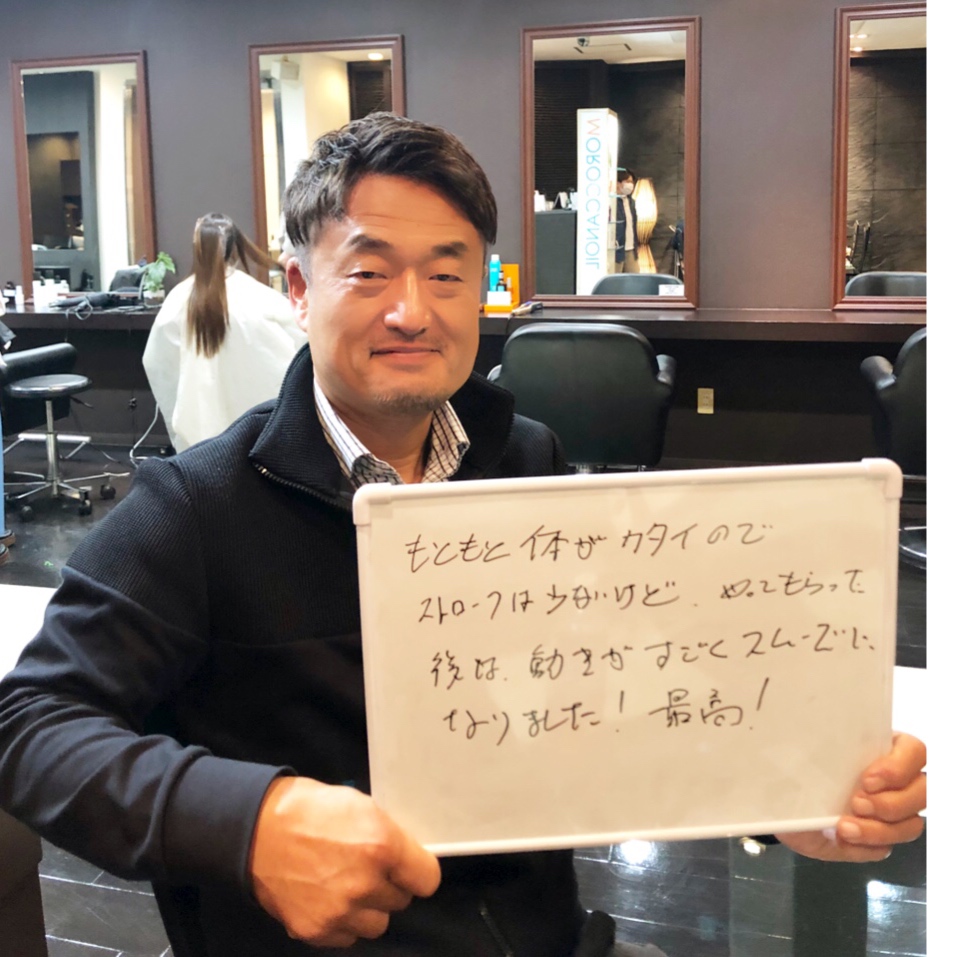 MOROCCANOIL
もともと体がカタイので
ストロークは少ないけど、やってもらった
後は、動きがすごくスムーズに、
なりました！最高！